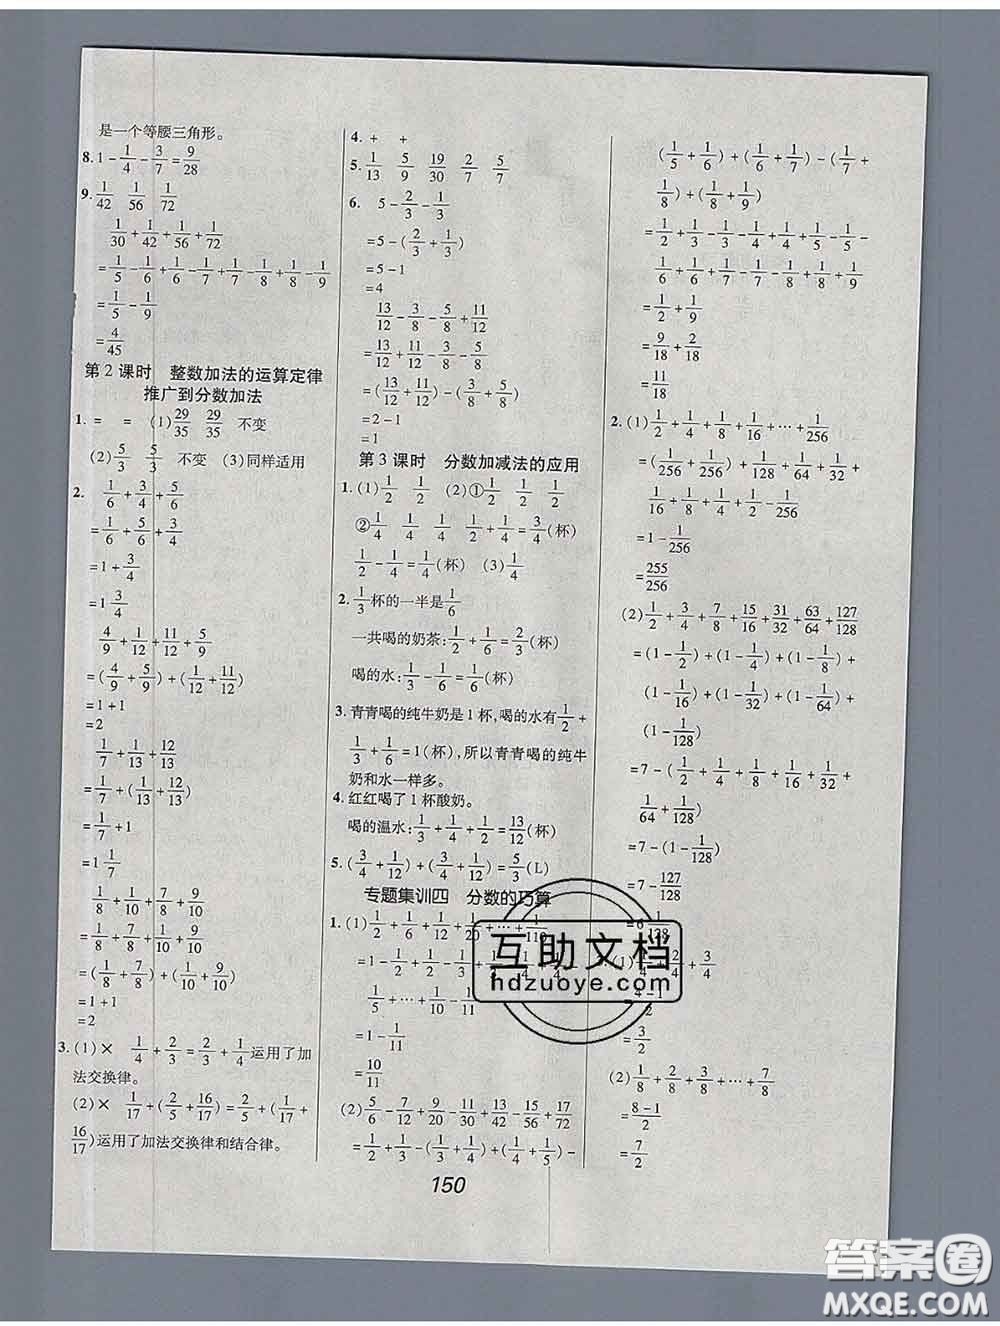 是一个等腰三角形。
8. 1-1/4-3/7=9/28
9. 1/42 1/56 1/72
1/30+1/42+1/56+1/72
=1/5-1/6+1/6-1/7+1/7-1/8+1/8-1/9
=1/5-1/9
=4/45
第2课时 整数加法的运算定律
推广到分数加法
1. = = (1)29/35 29/35 不变
(2)5/3 5/3 不变 (3)同样适用
2. 1/6+3/4+5/6
=1/6+5/6+3/4
=1+3/4
=1 3/4
4/9+1/12+11/12+5/9
=(4/9+5/9)+(1/12+11/12)
=1+1
=2
1/7+1/13+12/13
=1/7+(1/13+12/13)
=1/7+1
=1 1/7
1/8+1/10+7/8+9/10
=1/8+7/8+1/10+9/10
=(1/8+7/8)+(1/10+9/10)
=1+1
=2
3. (1)× 1/4+2/3=2/3+1/4运用了加
法交换律。
(2)× 1/17+(2/5+16/17)=2/5+(1/17+
16/17)运用了加法交换律和结合律。
4. + +
5. 1/13 5/9 19/30 2/7 5/7
6. 5-2/3-1/3
=5-(2/3+1/3)
=5-1
=4
13/12-3/8-5/8+11/12
=13/12+11/12-3/8-5/8
=(13/12+11/12)-(3/8+5/8)
=2-1
=1
第3课时 分数加减法的应用
1. (1)1/2 1/2 (2)①1/2 1/2 1/2
②1/4 1/4 1/4 1/2+1/4=3/4(杯)
1/2-1/4=1/4(杯) (3)1/4
2. 1/3杯的一半是1/6
一共喝的奶茶:1/2+1/6=2/3(杯)
喝的水:1/3-1/6=1/6(杯)
3. 青青喝的纯牛奶是1杯,喝的水有1/2+
1/3+1/6=1(杯),所以青青喝的纯牛
奶和水一样多。
4. 红红喝了1杯酸奶。
喝的温水:1/3+1/4+1/2=13/12(杯)
5. (3/4+1/12)+(3/4+1/12)=5/3(L)
专题集训四 分数的巧算
1. (1)1/2+1/6+1/12+1/20+…+1/110
=1-1/2+1/2-1/3+1/3-1/4+1/4-
1/5+…+1/10-1/11
=1-1/11
=10/11
(2)5/6-7/12+9/20-11/30+13/42-15/56+17/72
=1/2+1/3-(1/3+1/4)+(1/4+1/5)-
(1/5+1/6)+(1/6+1/7)-(1/7+
1/8)+(1/8+1/9)
=1/2+1/3-1/3-1/4+1/4+1/5-1/5-
1/6+1/6+1/7-1/7-1/8+1/8+1/9
=1/2+1/9
=9/18+2/18
=11/18
2. (1)1/2+1/4+1/8+1/16+…+1/256
=(1/256+1/256)+1/128+1/64+1/32+
1/16+1/8+1/4+1/2-1/256
=1-1/256
=255/256
(2)1/2+3/4+7/8+15/16+31/32+63/64+127/128
=(1-1/2)+(1-1/4)+(1-1/8)+
(1-1/16)+(1-1/32)+(1-1/64)+
(1-1/128)
=7-(1/2+1/4+1/8+1/16+1/32+
1/64+1/128)
=7-(1-1/128)
=7-127/128
=6 1/128
(1)1/4+2/4+3/4
=4-1/2
=3/2
(2)1/8+2/8+3/8+…+7/8
=8-1/2
=7/2
150
互助文档
hdzuoye.com
答案圈
MXQE.COM